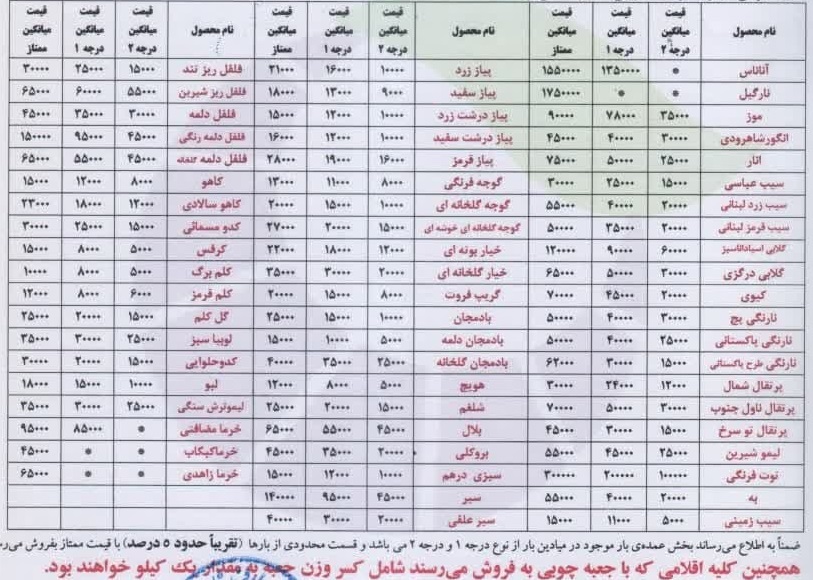 نام محصول | قیمت میانگین درجه ۲ | قیمت میانگین درجه ۱ | قیمت میانگین ممتاز | نام محصول | قیمت میانگین درجه ۲ | قیمت میانگین درجه ۱ | قیمت میانگین ممتاز | نام محصول | قیمت میانگین درجه ۲ | قیمت میانگین درجه ۱ | قیمت میانگین ممتاز
آناناس | • | ۱۳۵۰۰۰۰ | ۱۵۵۰۰۰۰ | پیاز زرد | ۱۰۰۰۰ | ۱۶۰۰۰ | ۲۱۰۰۰ | فلفل ریز تند | ۱۵۰۰۰ | ۲۵۰۰۰ | ۳۰۰۰۰
نارگیل | • | • | ۱۷۵۰۰۰۰ | پیاز سفید | ۹۰۰۰ | ۱۳۰۰۰ | ۱۸۰۰۰ | فلفل ریز شیرین | ۵۵۰۰۰ | ۶۰۰۰۰ | ۶۵۰۰۰
موز | ۳۵۰۰۰ | ۷۸۰۰۰ | ۹۰۰۰۰ | پیاز درشت زرد | ۱۰۰۰۰ | ۱۲۰۰۰ | ۱۵۰۰۰ | فلفل دلمه | ۳۰۰۰۰ | ۳۵۰۰۰ | ۴۵۰۰۰
انگورشاهرودی | ۳۰۰۰۰ | ۴۰۰۰۰ | ۴۵۰۰۰ | پیاز درشت سفید | ۱۰۰۰۰ | ۱۲۰۰۰ | ۱۶۰۰۰ | فلفل دلمه رنگی | ۴۵۰۰۰ | ۹۵۰۰۰ | ۱۵۰۰۰۰
انار | ۲۵۰۰۰ | ۵۰۰۰۰ | ۷۵۰۰۰ | پیاز قرمز | ۱۶۰۰۰ | ۱۹۰۰۰ | ۲۸۰۰۰ | فلفل دلمه گلخانه | ۴۵۰۰۰ | ۵۵۰۰۰ | ۶۵۰۰۰
سیب عباسی | ۱۵۰۰۰ | ۲۵۰۰۰ | ۳۰۰۰۰ | گوجه فرنگی | ۸۰۰۰ | ۱۱۰۰۰ | ۱۳۰۰۰ | کاهو | ۸۰۰۰ | ۱۲۰۰۰ | ۱۵۰۰۰
سیب زرد لبنانی | ۲۰۰۰۰ | ۴۰۰۰۰ | ۵۵۰۰۰ | گوجه گلخانه ای | ۱۰۰۰۰ | ۱۵۰۰۰ | ۲۰۰۰۰ | کاهو سالادی | ۱۲۰۰۰ | ۱۸۰۰۰ | ۲۳۰۰۰
سیب قرمز لبنانی | ۲۰۰۰۰ | ۳۵۰۰۰ | ۵۰۰۰۰ | گوجه گلخانه ای خوشه ای | ۱۵۰۰۰ | ۲۰۰۰۰ | ۲۷۰۰۰ | کدو مسمائی | ۱۵۰۰۰ | ۲۵۰۰۰ | ۳۰۰۰۰
گلابی اسپاداناسبز | ۶۰۰۰۰ | ۹۰۰۰۰ | ۱۲۰۰۰۰ | خیار بوته ای | ۱۲۰۰۰ | ۱۸۰۰۰ | ۲۲۰۰۰ | کرفس | ۵۰۰۰ | ۸۰۰۰ | ۱۵۰۰۰
گلابی درگزی | ۳۰۰۰۰ | ۵۰۰۰۰ | ۶۵۰۰۰ | خیار گلخانه ای | ۲۰۰۰۰ | ۳۰۰۰۰ | ۳۵۰۰۰ | کلم برگ | ۵۰۰۰ | ۸۰۰۰ | ۱۰۰۰۰
کیوی | ۲۰۰۰۰ | ۴۵۰۰۰ | ۷۰۰۰۰ | گریپ فروت | ۸۰۰۰ | ۱۵۰۰۰ | ۲۰۰۰۰ | کلم قرمز | ۶۰۰۰ | ۸۰۰۰ | ۱۲۰۰۰
نارنگی پیچ | ۳۰۰۰۰ | ۴۰۰۰۰ | ۵۰۰۰۰ | بادمجان | ۱۰۰۰۰ | ۱۵۰۰۰ | ۲۵۰۰۰ | گل کلم | ۱۵۰۰۰ | ۲۰۰۰۰ | ۲۵۰۰۰
نارنگی پاکستانی | ۲۵۰۰۰ | ۴۰۰۰۰ | ۵۰۰۰۰ | بادمجان دلمه | ۵۰۰۰ | ۱۰۰۰۰ | ۱۵۰۰۰ | لوبیا سبز | ۲۵۰۰۰ | ۳۰۰۰۰ | ۳۵۰۰۰
نارنگی طرح پاکستانی | ۱۵۰۰۰ | ۳۰۰۰۰ | ۶۲۰۰۰ | بادمجان گلخانه | ۲۵۰۰۰ | ۳۵۰۰۰ | ۴۰۰۰۰ | کدوحلوایی | ۱۵۰۰۰ | ۲۰۰۰۰ | ۳۰۰۰۰
پرتقال شمال | ۱۲۰۰۰ | ۲۴۰۰۰ | ۳۰۰۰۰ | هویج | ۵۰۰۰ | ۸۰۰۰ | ۱۲۰۰۰ | لبو | ۱۰۰۰۰ | ۱۵۰۰۰ | ۱۸۰۰۰
پرتقال ناول جنوب | ۳۰۰۰۰ | ۵۰۰۰۰ | ۷۰۰۰۰ | شلغم | ۱۵۰۰۰ | ۲۰۰۰۰ | ۲۵۰۰۰ | لیموترش سنگی | ۲۵۰۰۰ | ۳۰۰۰۰ | ۳۵۰۰۰
پرتقال تو سرخ | ۱۵۰۰۰ | ۳۰۰۰۰ | ۴۵۰۰۰ | بلال | ۴۵۰۰۰ | ۵۵۰۰۰ | ۶۵۰۰۰ | خرما مضافتی | • | ۸۵۰۰۰ | ۹۵۰۰۰
لیمو شیرین | ۲۵۰۰۰ | ۴۵۰۰۰ | ۵۵۰۰۰ | بروکلی | ۲۰۰۰۰ | ۳۵۰۰۰ | ۴۵۰۰۰ | خرماکبکاب | • | • | ۴۵۰۰۰
توت فرنگی | ۱۰۰۰۰۰ | ۲۰۰۰۰۰ | ۳۰۰۰۰۰ | سبزی درهم | ۱۰۰۰۰ | ۱۲۰۰۰ | ۱۵۰۰۰ | خرما زاهدی | • | • | ۶۵۰۰۰
به | ۲۰۰۰۰ | ۴۰۰۰۰ | ۵۵۰۰۰ | سیر | ۴۵۰۰۰ | ۹۵۰۰۰ | ۱۴۰۰۰۰
سیب زمینی | ۵۰۰۰ | ۱۱۰۰۰ | ۱۵۰۰۰ | سیر علفی | ۲۰۰۰۰ | ۳۰۰۰۰ | ۴۰۰۰۰
ضمناً به اطلاع می‌رساند بخش عمده‌ی بار موجود در میادین بار از نوع درجه ۱ و درجه ۲ می باشد و قسمت محدودی از بارها (تقریباً حدود ۵ درصد) با قیمت ممتاز بفروش می‌رس
همچنین کلیه اقلامی که با جعبه چوبی به فروش می‌رسند شامل کسر وزن جعبه به مقدار یک کیلو خواهند بود.